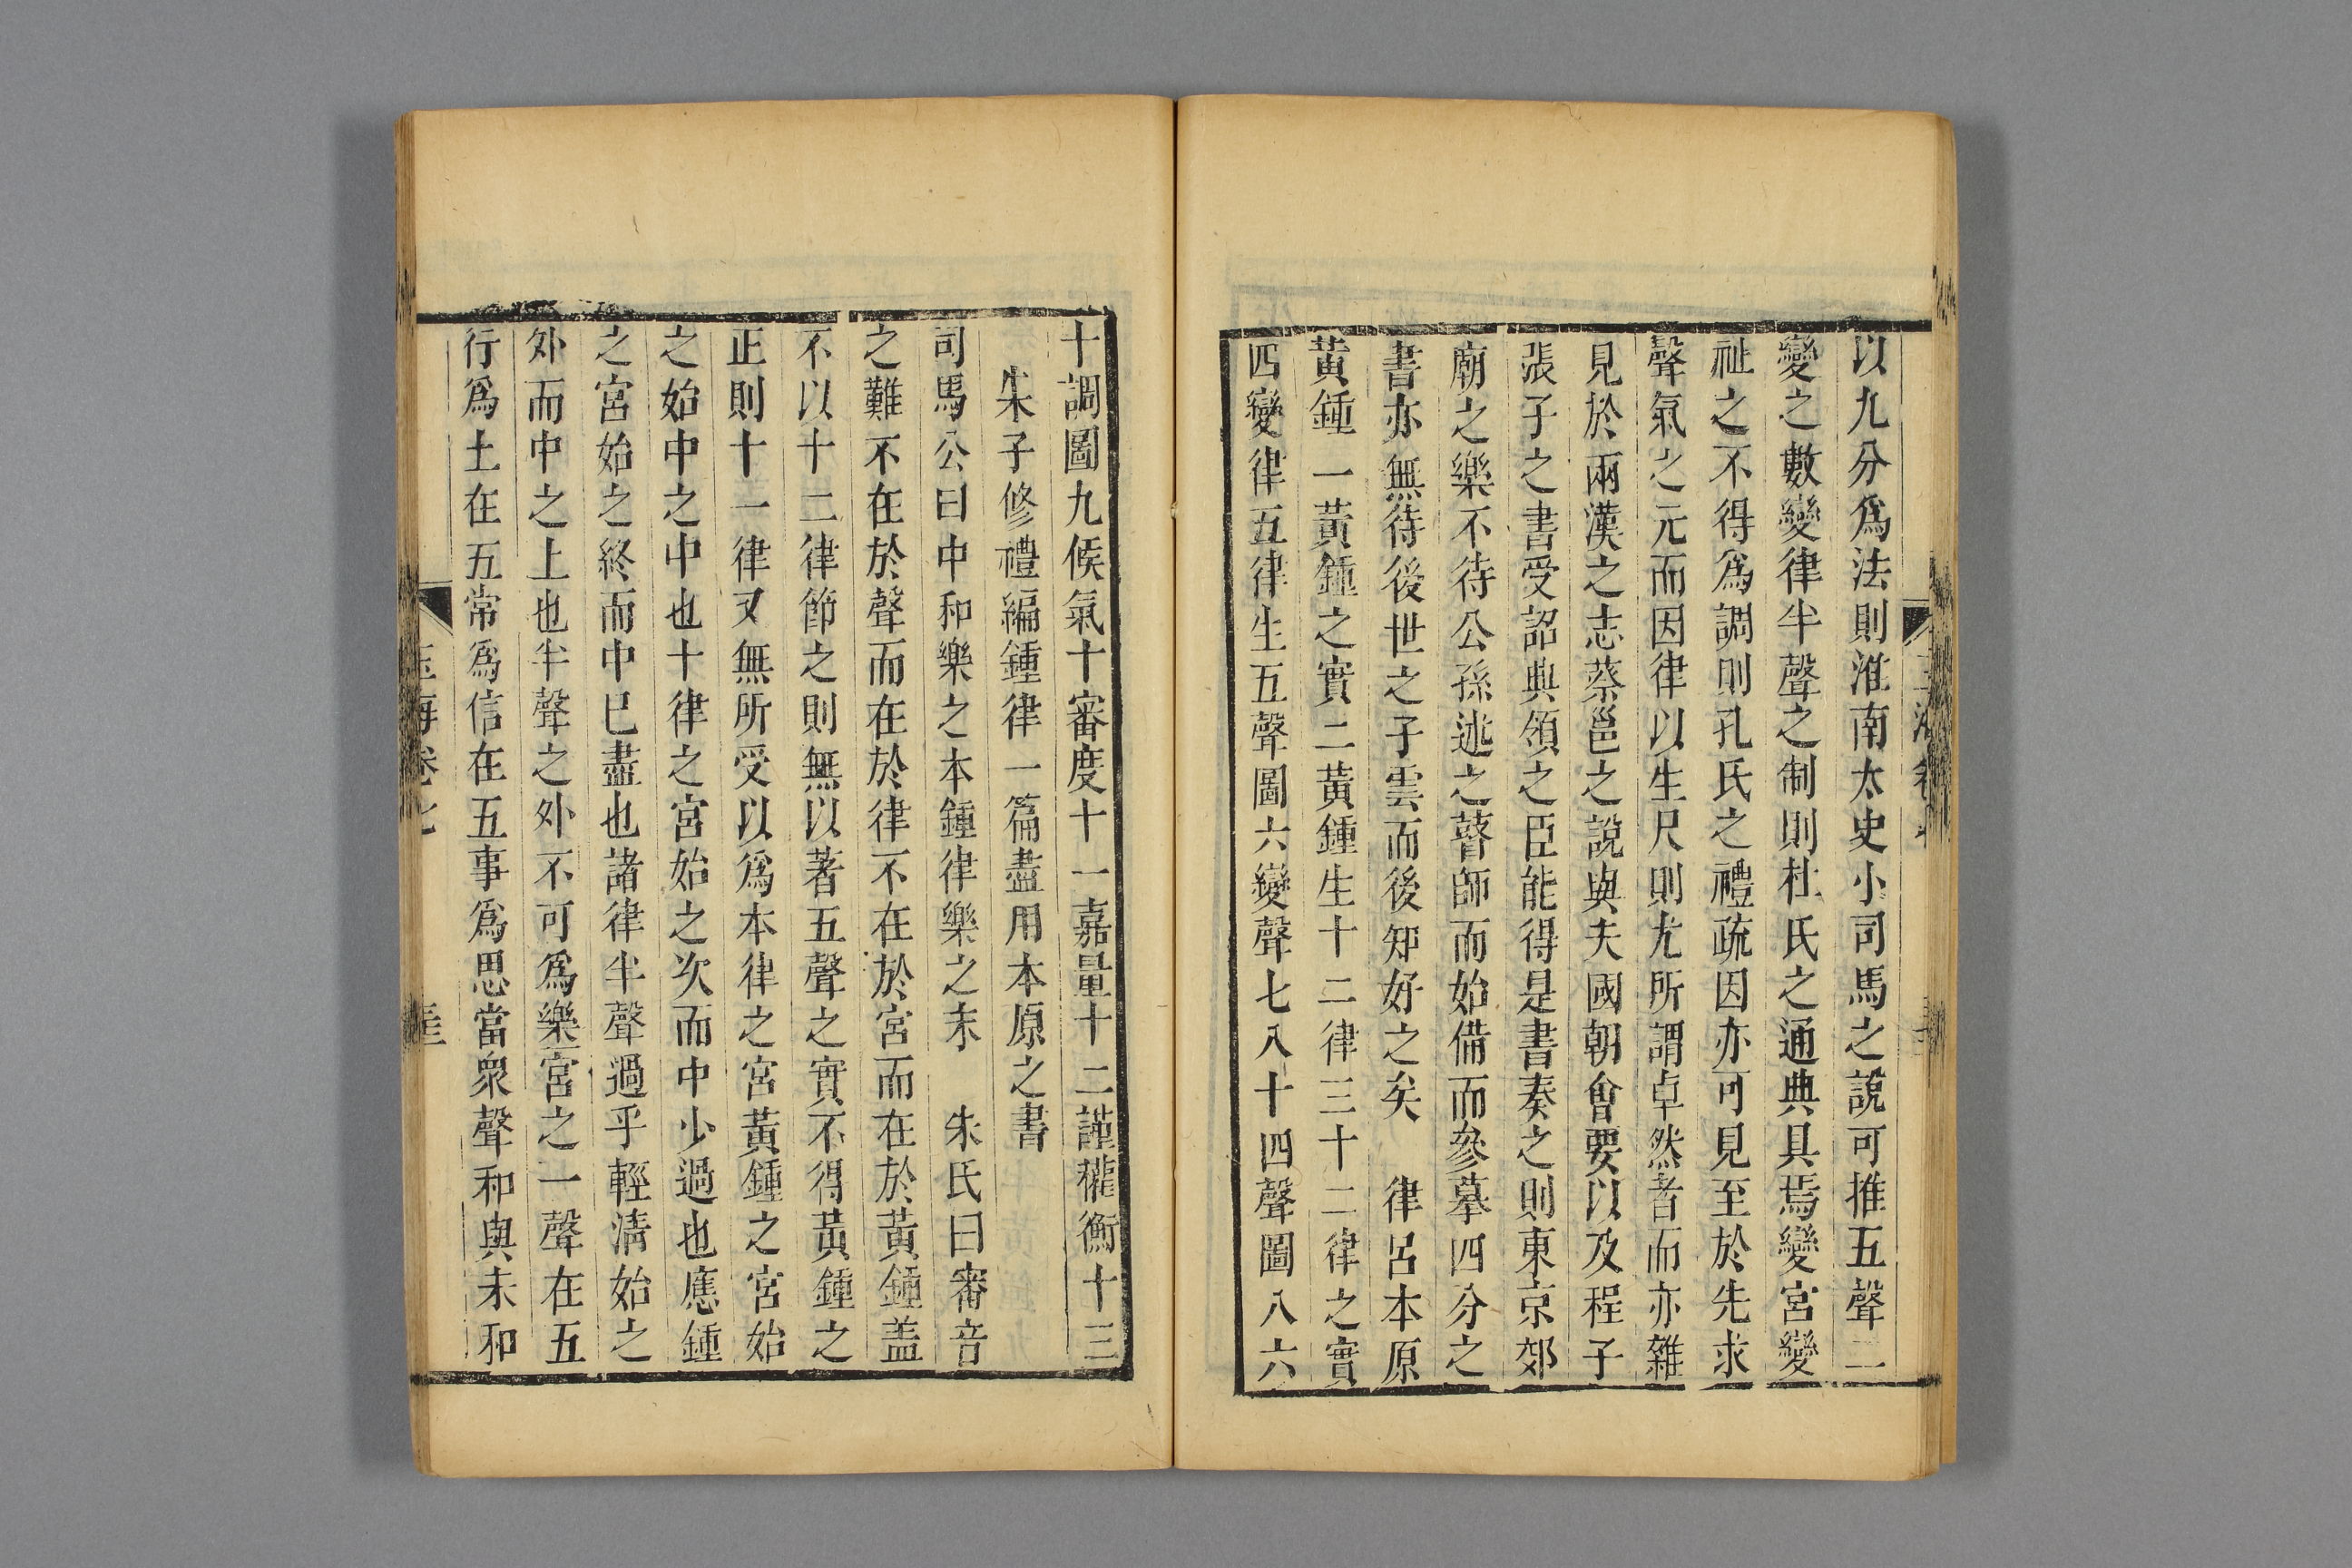 以九分爲法則淮南太史小司馬之說可推五聲二
變之數變律半聲之制則杜氏之通典具焉變宮變
祉之不得爲調則孔氏之禮疏因亦可見至於先求
聲氣之元而因律以生尺則尤所謂卓然者而亦雜
見於兩漢之志蔡邕之說與夫國朝會要以及程子
張子之書受詔典領之臣能得是書奏之則東京郊
廟之樂不待公孫述之瞽師而始備而參摹四分之
書亦無待後世之子雲而後知好之矣　律呂本原
黃鍾一黃鍾之實二黃鍾生十二律三十二律之實
四變律五律生五聲圖六變聲七八十四聲圖八六
十調圖九候氣十審度十一嘉量十二謹權衡十三
朱子修禮編鍾律一篇盡用本原之書
司馬公曰中和樂之本鍾律樂之末　朱氏曰審音
之難不在於聲而在於律不在於宮而在於黃鍾盖
不以十二律節之則無以著五聲之實不得黃鍾之
正則十一律又無所受以爲本律之宮黃鍾之宮始
之始中之中也十律之宮始之次而中少過也應鍾
之宮始之終而中已盡也諸律半聲過乎輕清始之
外而中之上也半聲之外不可爲樂宮之一聲在五
行爲土在五常爲信在五事爲思當衆聲和與未和
玉海卷七